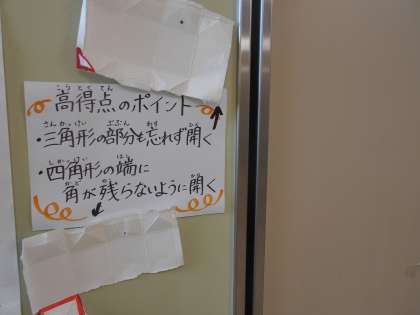 高得点のポイント
・三角形の部分も忘れず開く
・四角形の端に
角が残らないように開く